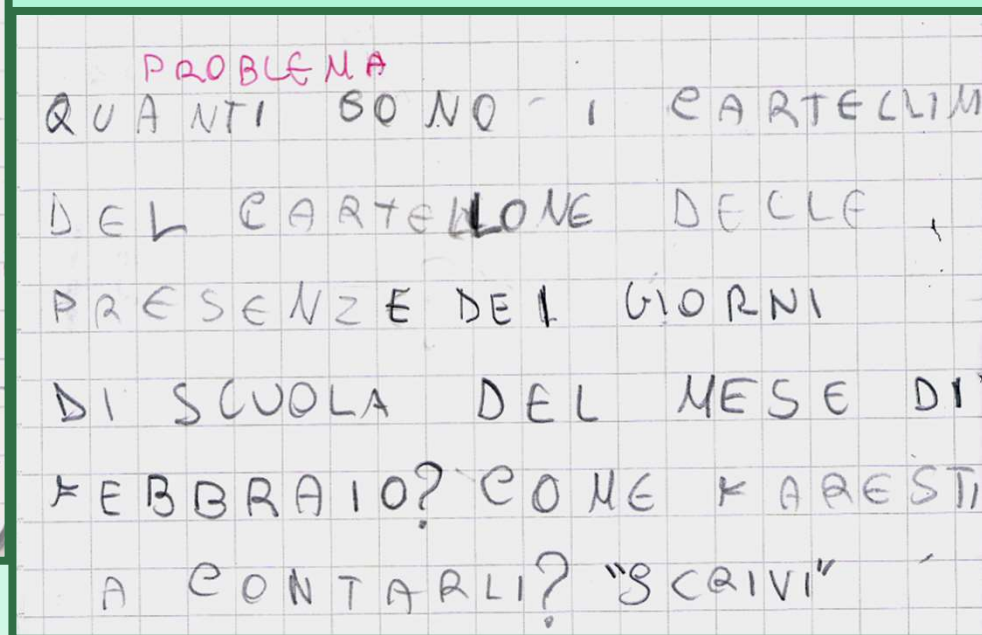 PROBLEMA
QUANTI SONO I CARTELLIN
DEL CARTELLONE DELLE
PRESENZE DEI GIORNI
DI SCUOLA DEL MESE DI
FEBBRAIO? COME FARESTI
A CONTARLI? "SCRIVI"